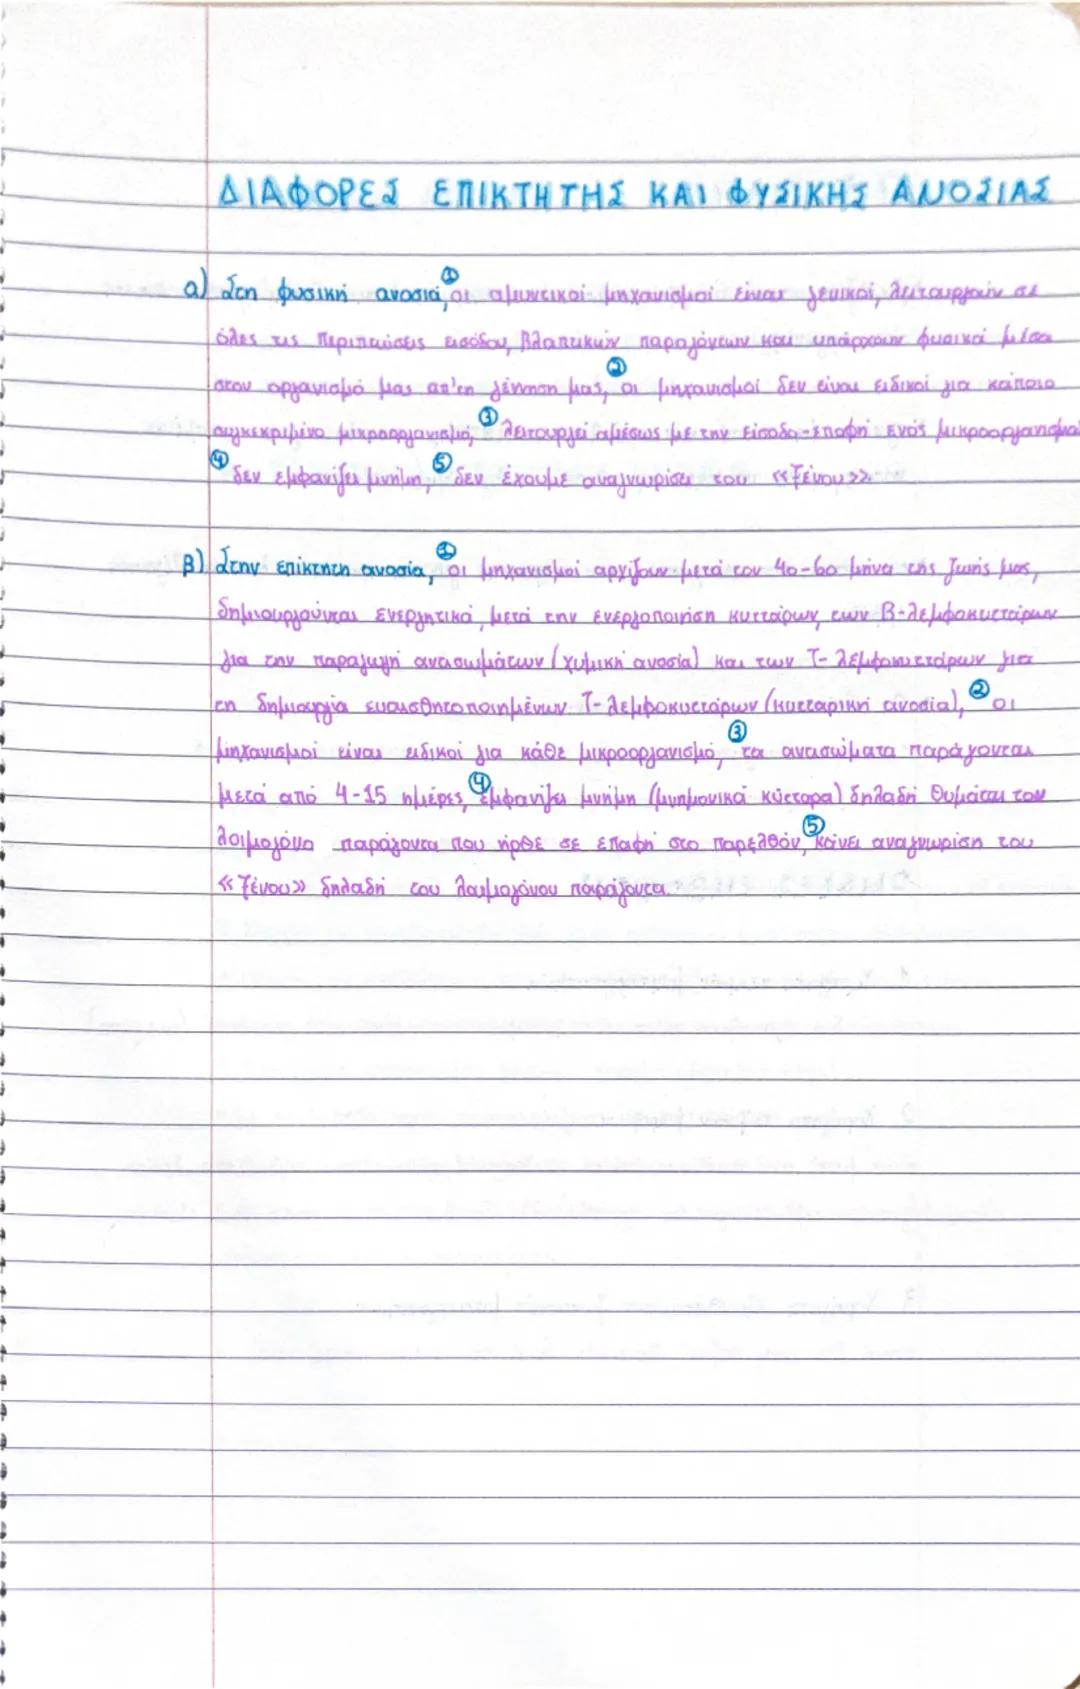 ΔΙΑΦΟΡΕΣ ΕΠΙΚΤΗΤΗΣ ΚΑΙ ΦΥΣΙΚΗΣ ΑΝΟΣΙΑΣ
α) Στη φυσική ανοσία, ① οι αμυντικοί μηχανισμοί είναι γενικοί, λειτουργούν σε
όλες τις περιπτώσεις εισόδου, βλαπτικών παραγόντων και υπάρχουν φυσικά μέσα
στον οργανισμό μας απ'τη γέννηση μας, ② οι μηχανισμοί δεν είναι ειδικοί για κάποιο
συγκεκριμένο μικροοργανισμό, ③ λειτουργεί αμέσως με την είσοδο-επαφή ενός μικροοργανισμού
④ δεν εμφανίζει μνήμη, ⑤ δεν έχουμε αναγνωρίσει του «ξένου»
β) Στην επίκτητη ανοσία, ① οι μηχανισμοί αρχίζουν μετά τον 4ο-6ο μήνα της ζωής μας,
δημιουργούνται ενεργητικά, μετά την ενεργοποίηση κυττάρων, των Β-λεμφοκυττάρων
για την παραγωγή αντισωμάτων (χυμική ανοσία) και των Τ-λεμφοκυττάρων για
τη δημιουργία ευαισθητοποιημένων Τ-λεμφοκυττάρων (κυτταρική ανοσία), ② οι
μηχανισμοί είναι ειδικοί για κάθε μικροοργανισμό, ③ τα αντισώματα παράγονται
μετά από 4-15 ημέρες, ④ εμφανίζει μνήμη (μνημονικά κύτταρα) δηλαδή θυμάται τον
λοιμογόνο παράγοντα που ήρθε σε επαφή στο παρελθόν, ⑤ κάνει αναγνώριση του
«ξένου» δηλαδή του λοιμογόνου παράγοντα.